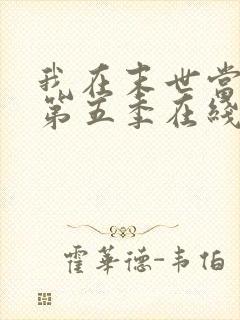 我在末世当
第五季在线
霍華德-韦伯